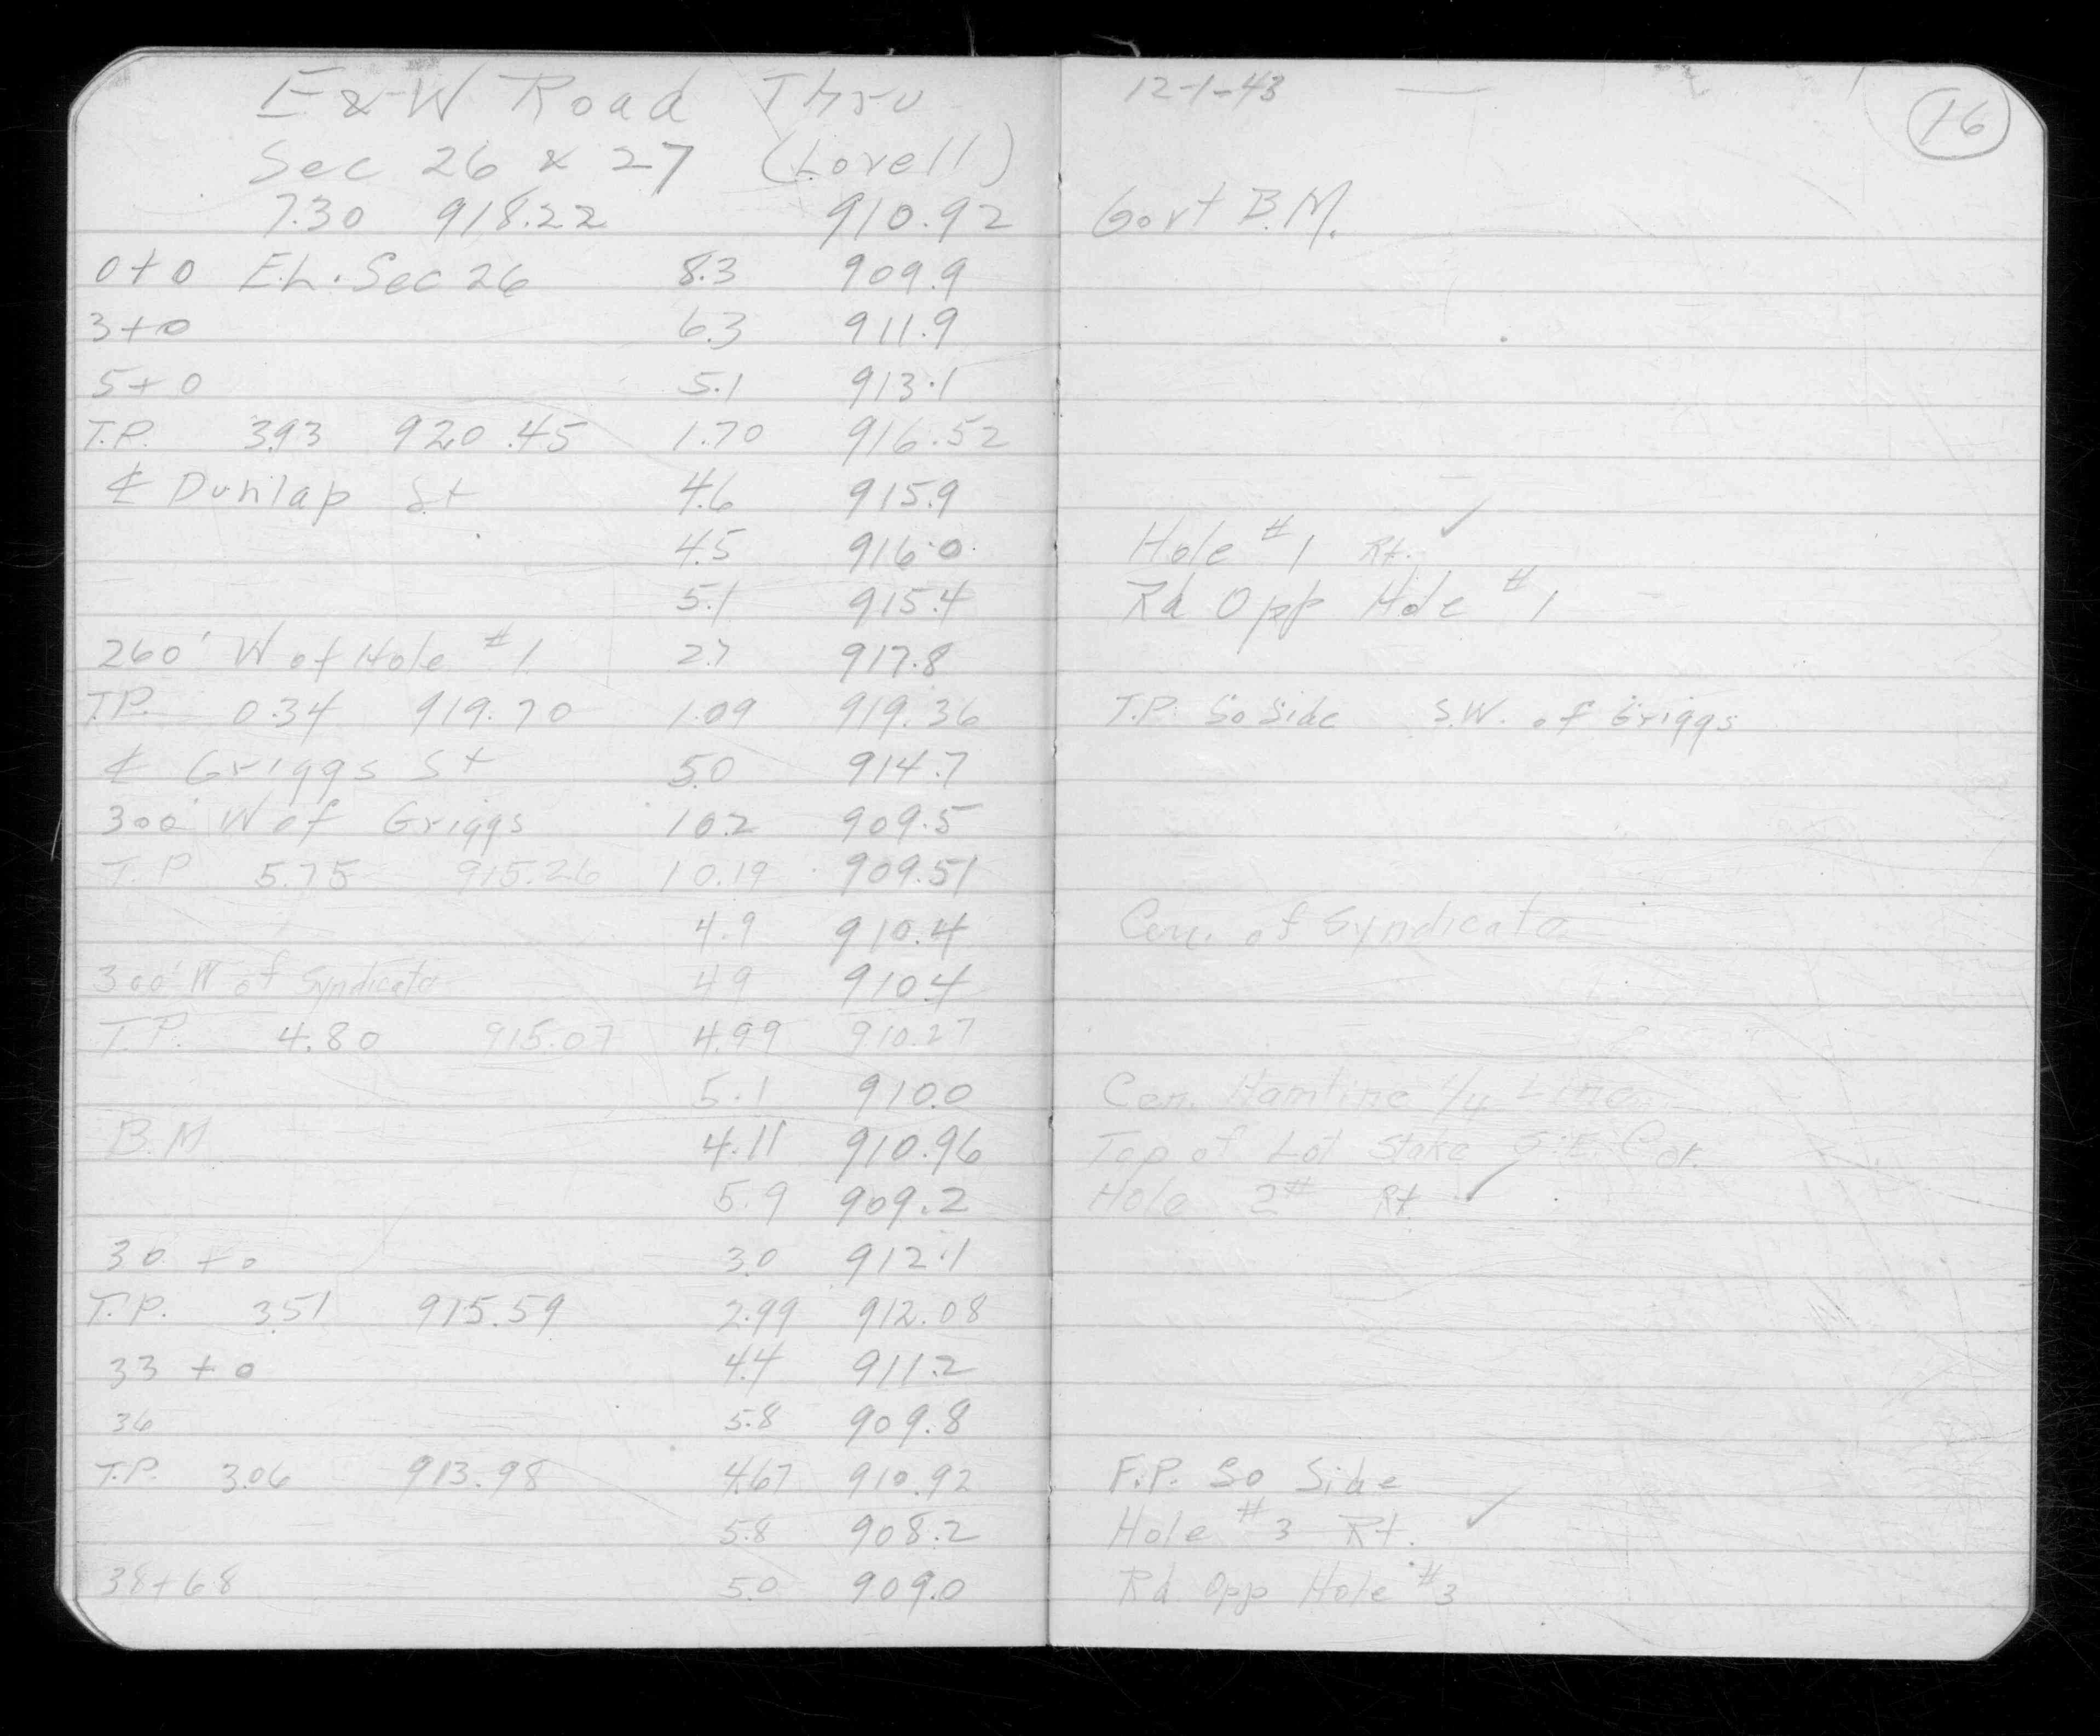 E & W Road Thru
Sec 26 & 27 (Lovell)
7.30 918.22 910.92
0+0 E.L. Sec 26 8.3 909.9
3+0 6.3 911.9
5+0 5.1 913.1
T.P. 3.93 920.45 1.70 916.52
℄ Dunlap St 4.6 915.9
4.5 916.0
5.1 915.4
260' W of Hole #1 2.7 917.8
T.P. 0.34 919.70 1.09 919.36
℄ Griggs St 5.0 914.7
300' W of Griggs 10.2 909.5
T.P 5.75 915.26 10.19 909.51
4.9 910.4
300' W of Syndicate 4.9 910.4
T.P. 4.80 915.07 4.99 910.27
5.1 910.0
B.M 4.11 910.96
5.9 909.2
30 +0 3.0 912.1
T.P. 3.51 915.59 2.99 912.08
33 +0 4.4 911.2
36 5.8 909.8
T.P. 3.06 913.98 4.67 910.92
5.8 908.2
38+68 5.0 909.0
12-1-43
16
Govt B.M.
Hole #1 Rt. ✓
Rd Opp Hole #1
T.P. So Side S.W. of Griggs
Cen. of Syndicate
Cen. Hamline 1/4 Line
Top of Lot Stake S.E. Cor.
Hole 2# Rt ✓
F.P. So Side
Hole #3 Rt. ✓
Rd Opp Hole #3